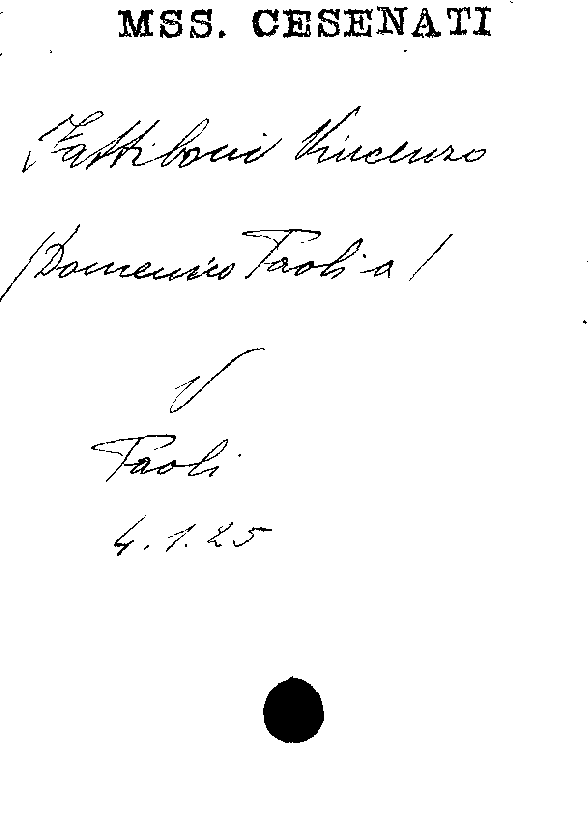 MSS. CESENATI
Fattiboni Vincenzo
(Domenico Paoli a)
V
Paoli
4.1.25